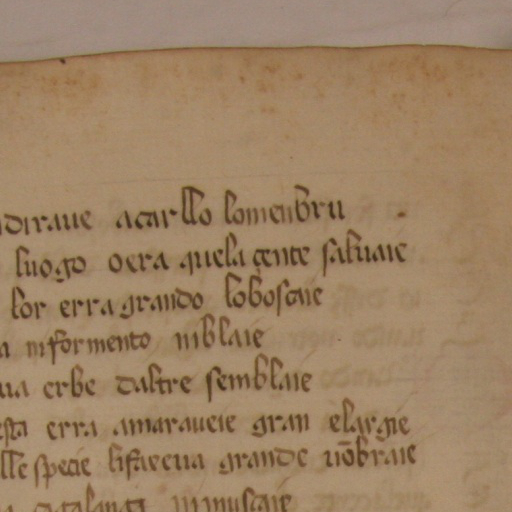 diraue acarllo lomenbru
luogo oera quela çente saluaie
lor erra grando loboscaie
informento niblaie
ua erbe daltre semblaie
esta erra amaraueie gran elargie
lle specie lifaceua grande nōbraie